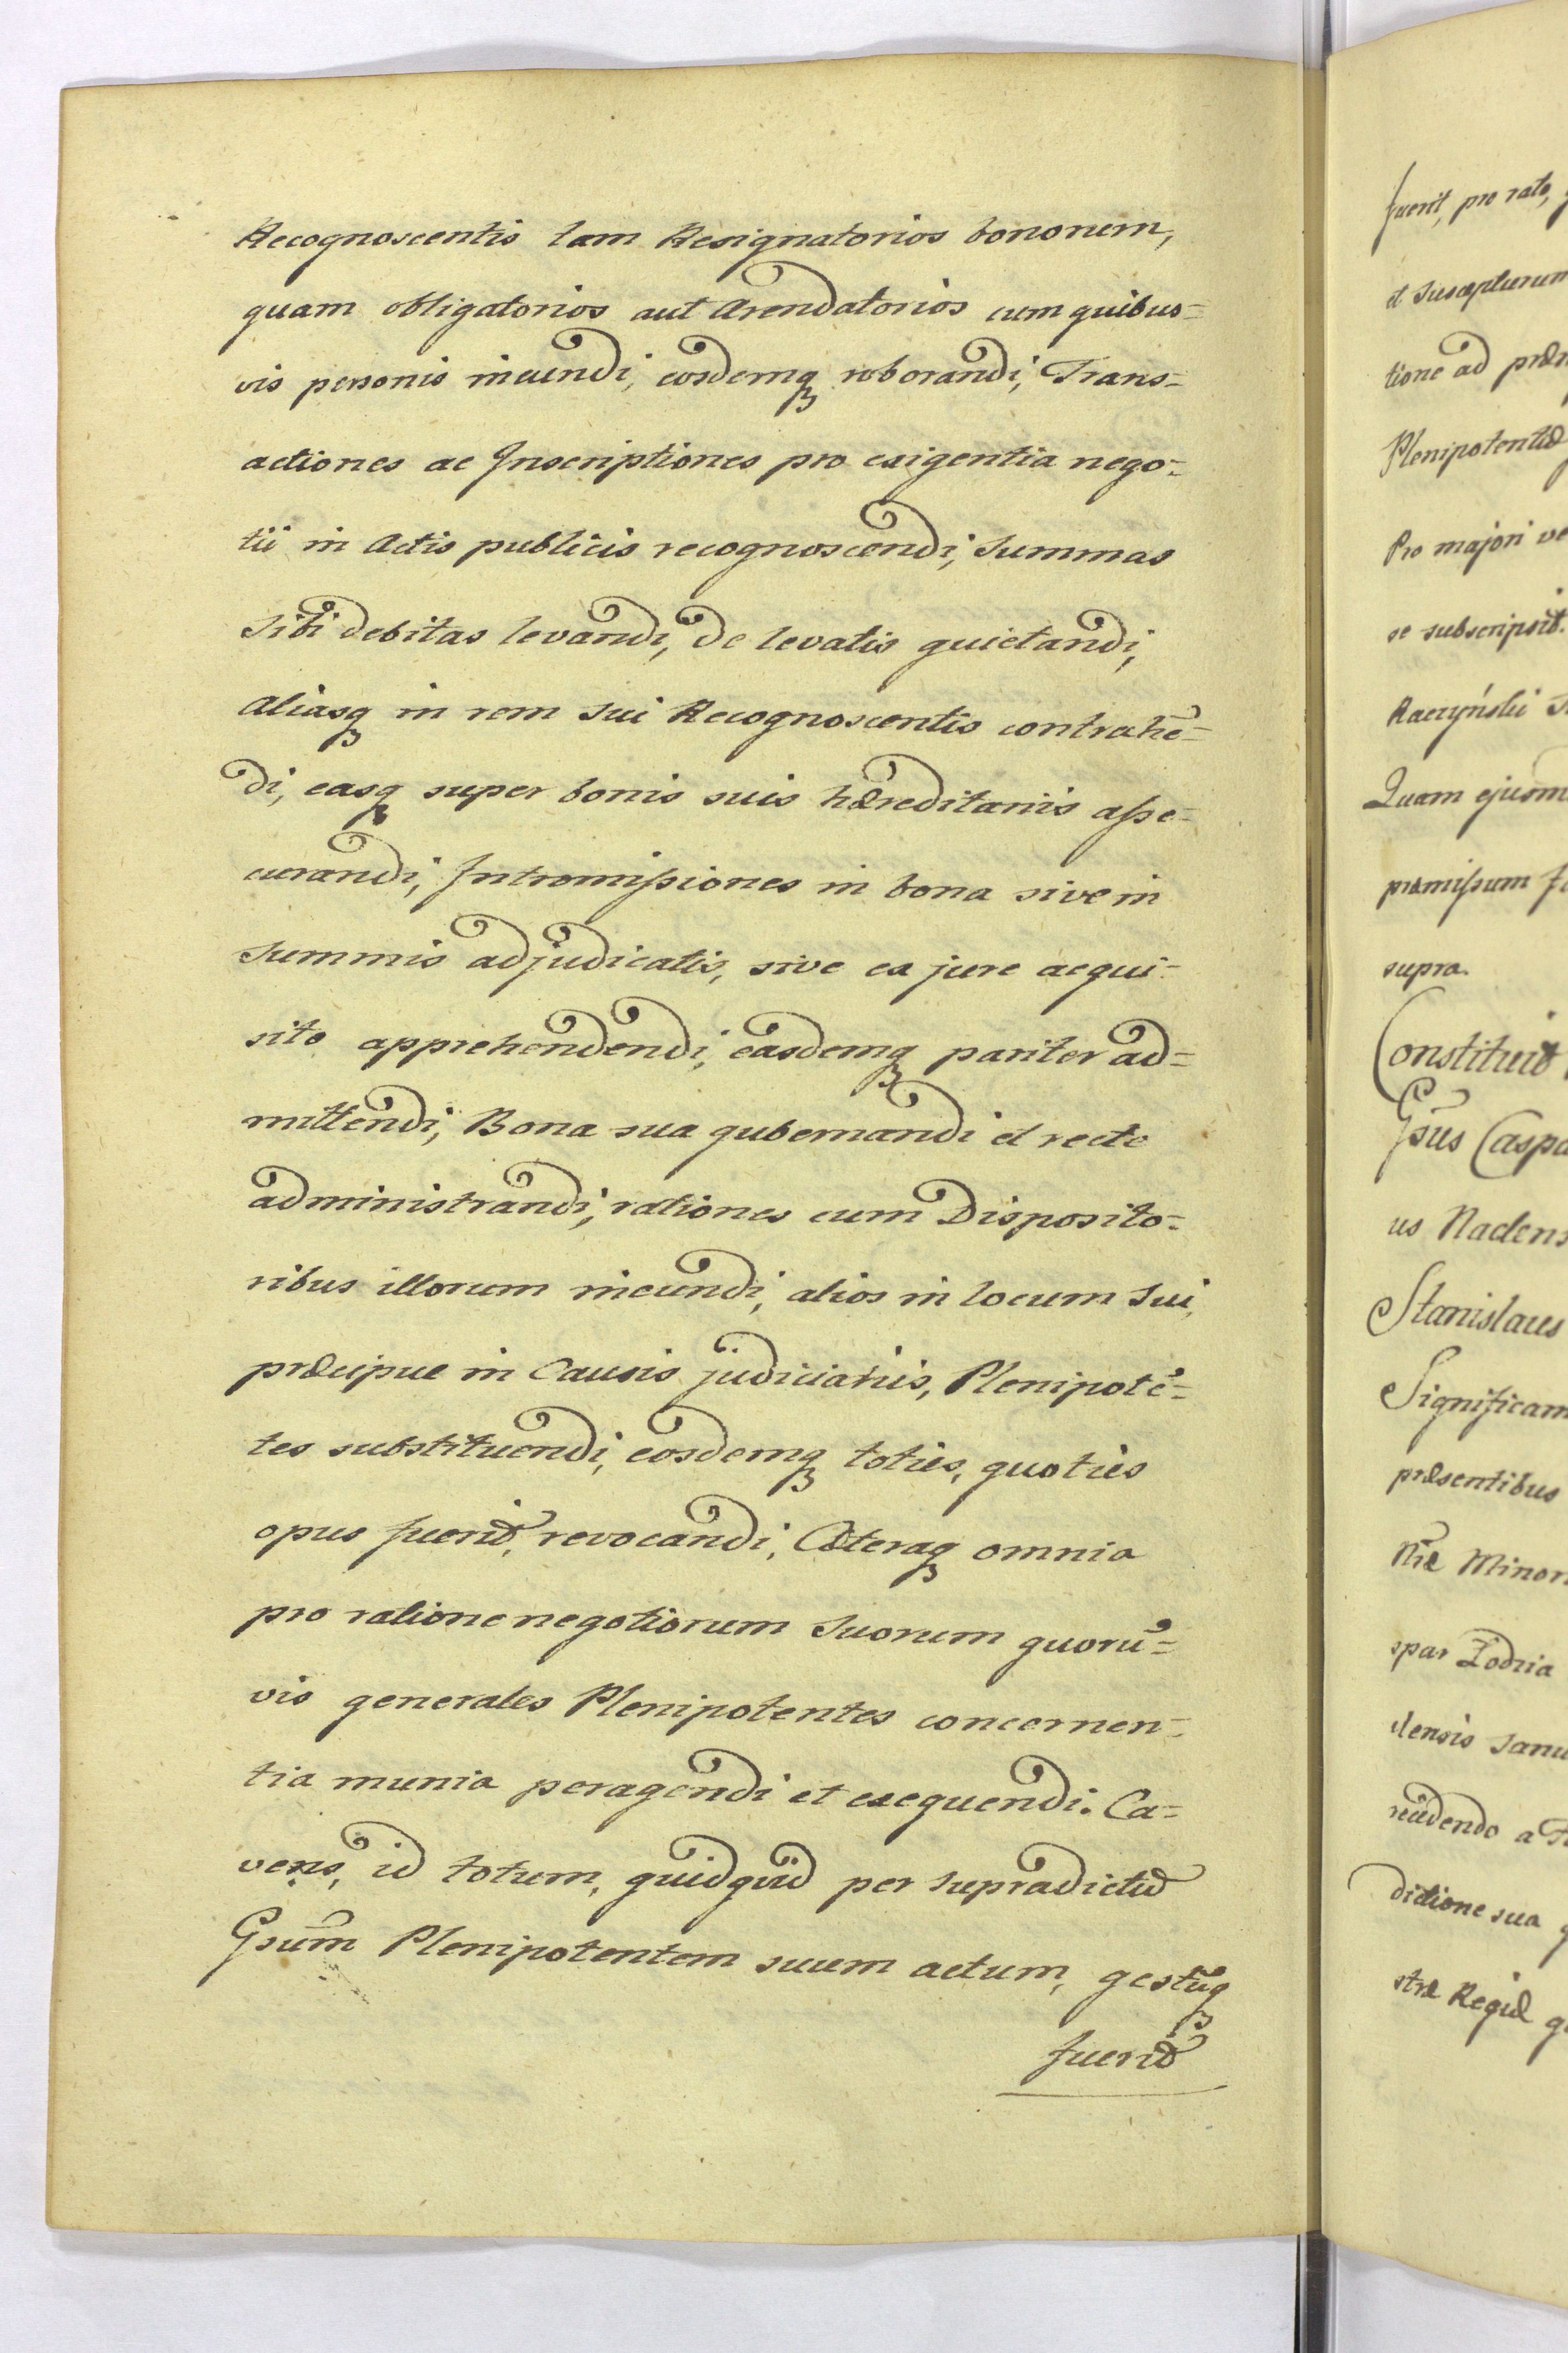 Recognoscentis tam Resignatorios bonorum,
quam obligatorios aut Arendatorios cum quibus=
vis personis ineundi, eosdemq₃ roborandi, Trans=
actiones ac Inscriptiones pro exigentia nego=
tii in Actis publicis recognoscendi, Summas
Sibi debitas levandi, de levatis quietandi,
Aliasq₃ in rem sui Recognoscentis contrahē=
di, easq₃ super bonis suis hæreditariis asse=
curandi, Intromissiones in bona sive in
Summis adjudicatis, sive ex jure acqui=
sito apprehendendi, easdemq₃ pariter ad=
mittendi, Bona sua gubernandi et recte
administrandi, rationes cum Disposito=
ribus illorum ineundi, alios in locum Sui,
præcipue in Causis judiciariis, Plenipotē=
tes substituendi, eosdemq₃ toties, quoties
opus fuerit, revocandi, Cæteraq₃ omnia
pro ratione negotiorum Suorum quorū=
vis generales Plenipotentes concernen=
tia munia peragendi et exequendi. Ca=
vens, id totum, quidquid per supradictū
Gsum̄ Plenipotentem suum actum, gestūq₃
fuerit
fuerit, pro rato,
et Suscepturum
tione ad
Plenipotentiæ
Pro majori
se subscripsit.
Raczyński
Quam
præmissum
supra.
Constituit
Gsus̄
us Naclens
Stanislaus
Significam
præsentibus
Minor
Zodzia
dictione sua
stræ Regiæ